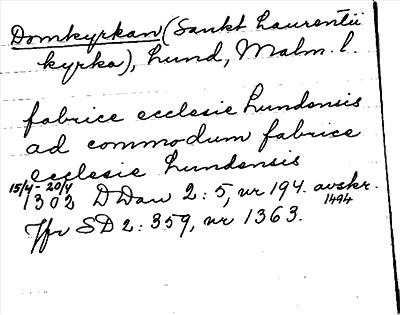 Domkyrkan (Sankt Laurentii
kyrka), Lund, Malm. l.
fabrice ecclesie Lundensis
ad commodum fabrice
ecclesie Lundensis
15/4-20/4
1302 D Dan 2:5, nr 194. avskr. 1494
Jfr SD 2:359, nr 1363.